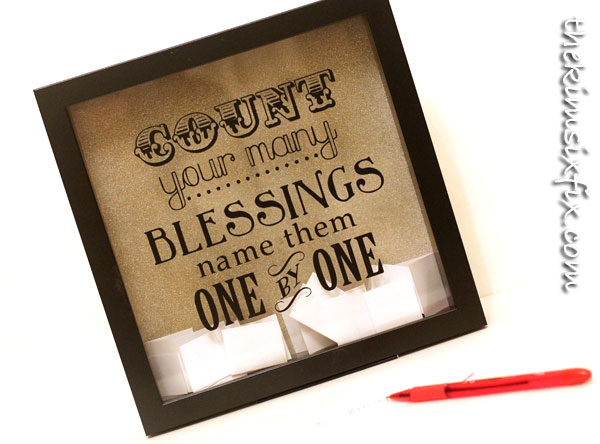 COUNT
your many
BLESSINGS
name them
ONE BY ONE
thekimsixfix.com